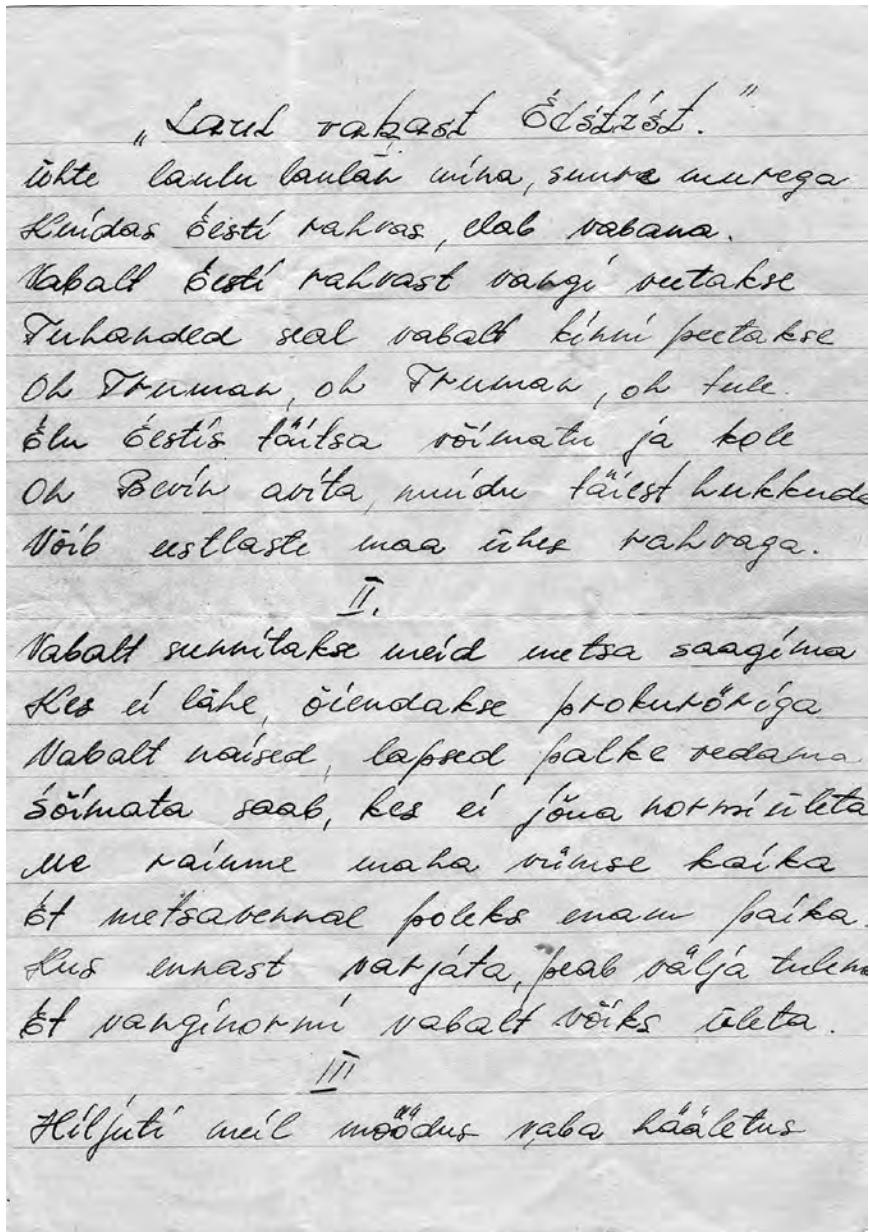 „Laul vabast Eestist."
Ühte laulu laulan mina, suure murega
Kuidas Eesti rahvas, elab vabana.
Vabalt Eesti rahvast vangi veetakse
Tuhanded seal vabalt kinni peetakse
Oh Truman, oh Truman, oh tule.
Elu Eestis täitsa võimatu ja kole
Oh Bevin avita, muidu täiest hukkuda
Võib eestlaste maa ühes rahvaga.
II.
Vabalt sunnitakse meid metsa saagima
Kes ei lähe, õiendakse prokuröriga
Vabalt naised, lapsed palke vedama
Sõimata saab, kes ei jõua normi ületa
Me raiume maha viimse kaika
Et metsavennal poleks enam paika.
Kus ennast varjata, peab välja tulema
Et vanginormi vabalt võiks ületa.
III
Hiljuti meil möödus vaba hääletus